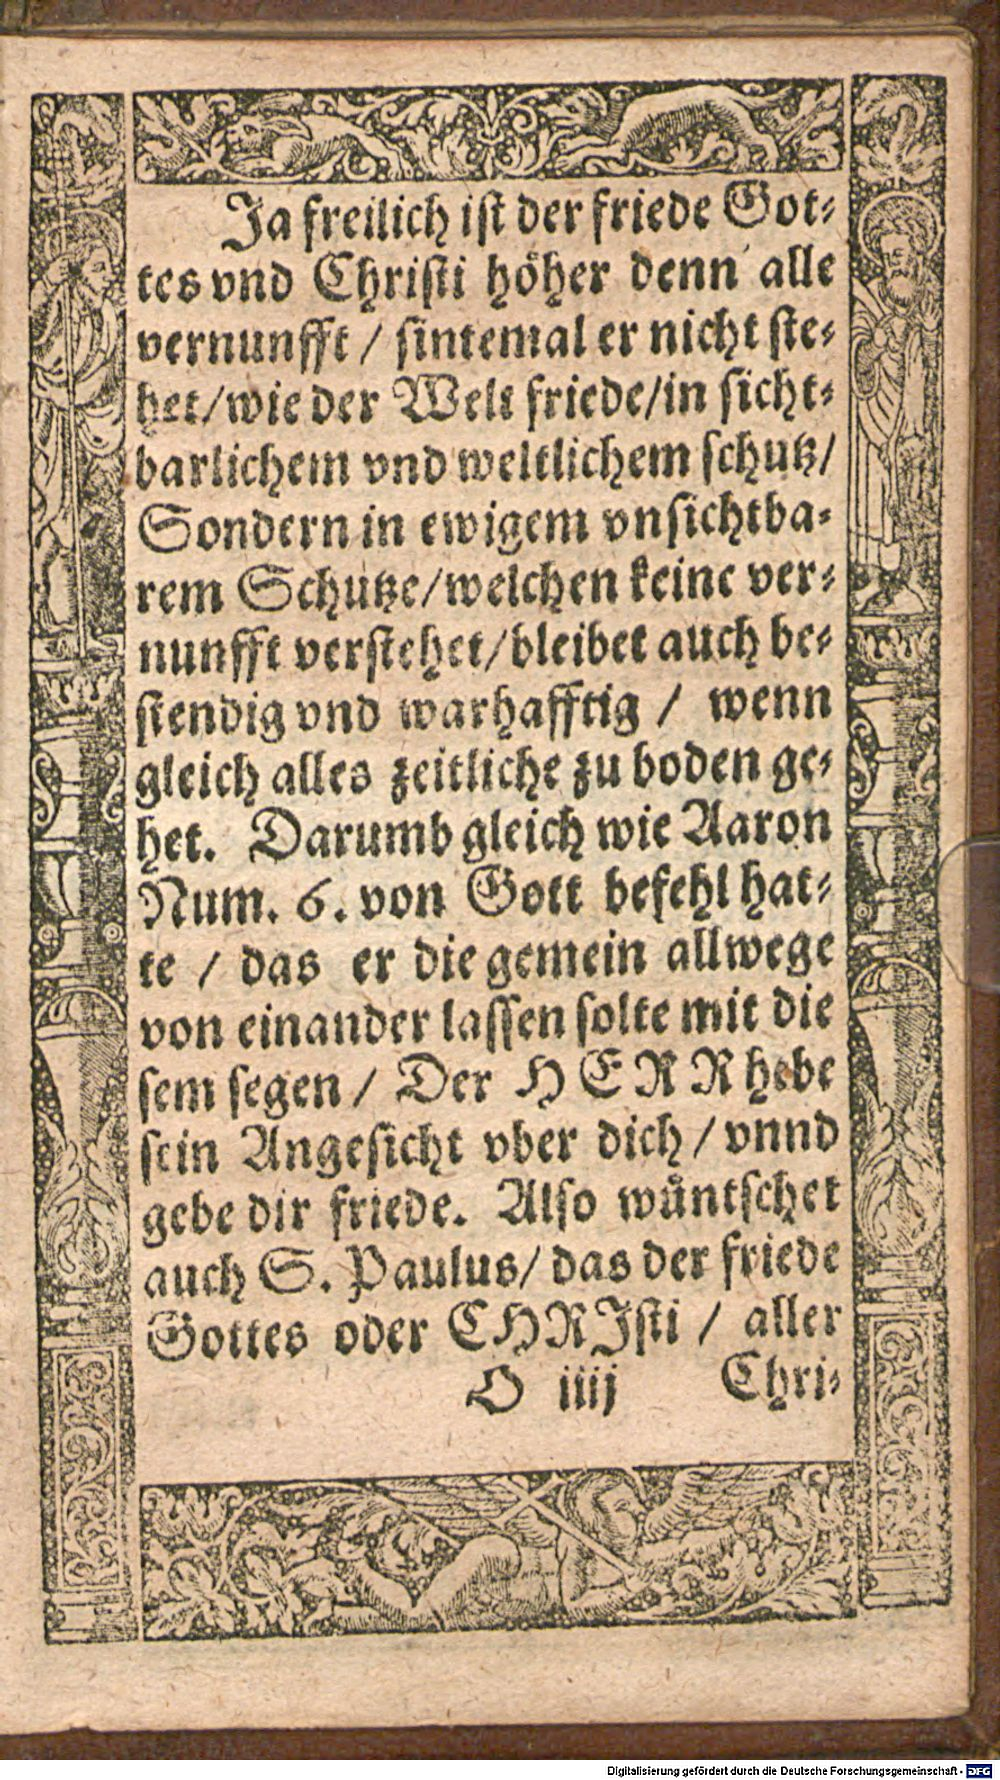 Ja freilich ist der friede Got⸗
tes vnd Christi höher denn alle
vernunfft / sintemal er nicht ste⸗
het/wie der Welt friede/in sicht⸗
barlichem vnd weltlichem schutz/
Sondern in ewigem vnsichtba⸗
rem Schutze/welchen keine ver⸗
nunfft verstehet/bleibet auch be⸗
stendig vnd warhafftig / wenn
gleich alles zeitliche zu boden ge⸗
het. Darumb gleich wie Aaron
Num. 6. von Gott befehl hat⸗
te / das er die gemein allwege
von einander lassen solte mit die
sem segen / Der HERR hebe
sein Angesicht vber dich / vnnd
gebe dir friede. Also wůntschet
auch S. Paulus/ das der friede
Gottes oder CHRJsti / aller
O iiij Chri⸗
Digitalisierung gefördert durch die Deutsche Forschungsgemeinschaft - DFG